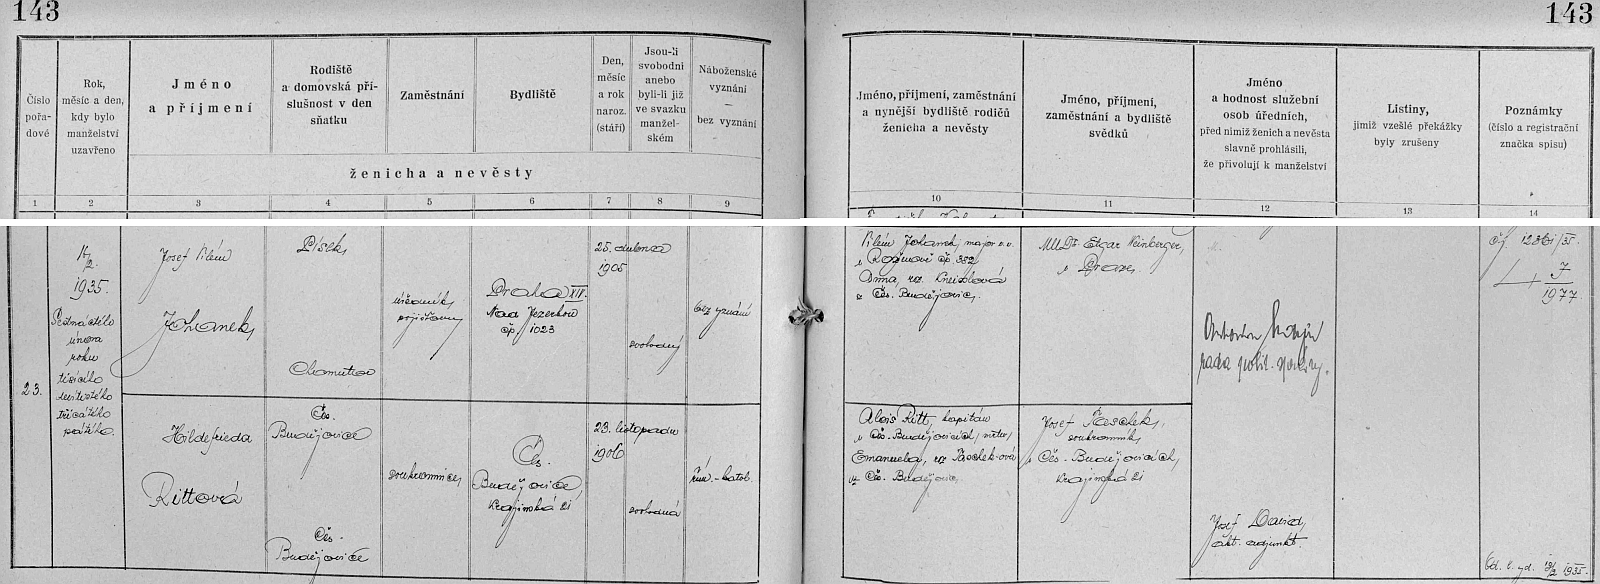 143
143
Číslo
pořa-
dové
Rok,
měsíc a den,
kdy bylo
manželství
uzavřeno
Jméno
a příjmení
Rodiště
a domovská pří-
slušnost v den
sňatku
Zaměstnání
Bydliště
Den,
měsíc
a rok
naroz.
(stáří)
Jsou-li
svobodni
anebo
byli-li již
ve svazku
manžel-
ském
Náboženské
vyznání
—
bez vyznání
ženicha a nevěsty
Jméno, příjmení, zaměstnání
a nynější bydliště rodičů
ženicha a nevěsty
Jméno, příjmení,
zaměstnání a bydliště
svědků
Jméno
a hodnost služební
osob úředních,
před nimiž ženich a nevěsta
slavně prohlásili,
že přivolují k manželství
Listiny,
jimiž vzešlé překážky
byly zrušeny
Poznámky
(číslo a registrační
značka spisu)
1
2
3
4
5
6
7
8
9
10
11
12
13
14
23.
16/2.
1935.
Šestnáctého
února
roku
tisícího
devítistého
třicátého
pátého.
Josef Vilém
Johanek,
Písek,
Chomutov
úředník
pojišťovny
Praha XIV.
Nad Jezerkou
čp. 1023
25. dubna
1905
svobodný
bez vyznání
Vilém Johanek, major v.v.
v Rožnově čp. 352
Anna, roz. Kneislová
z Čes. Budějovic.
MUDr. Edgar Weinberger,
v Praze.
rada polit. správy.
čj. 1236/35.
7
1977.
Hildefrieda
Rittová
Čes.
Budějovice
Čes.
Budějovice
soukromnice,
Čes.
Budějovice,
Krajinská 21
23. listopadu
1906
svobodná
řím.-katol.
Alois Ritt, kapitán
v Čes. Budějovicích,
Emanuela, roz. Taschek-ová
z Čes. Budějovic,
Josef Taschek,
soukromník
v Čes. Budějovicích,
Krajinská 21
Josef David,
akt. adjunkt.
Od. l. vyd. 19/2 1935.